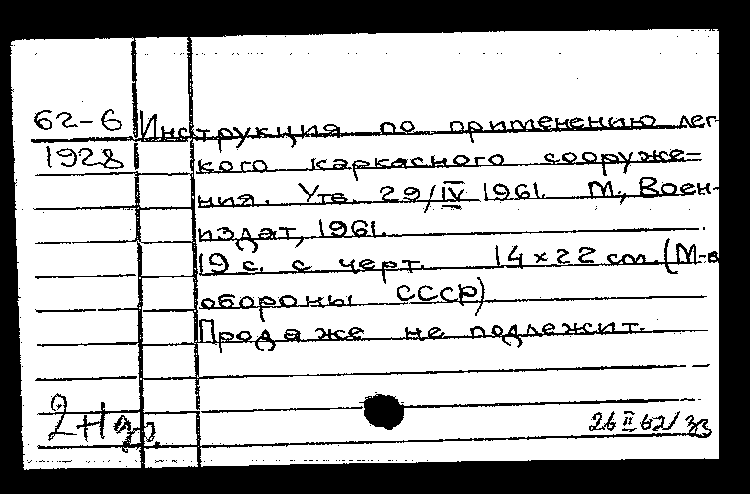 62-6
1928
Инструкция по применению лег-
кого каркасного сооруже=
ния. Утв. 29/IV 1961. М., Воен-
издат, 1961.
19 с. с черт. 14×22 см. (М-во
обороны СССР)
Продаже не подлежит.
26 II 62/